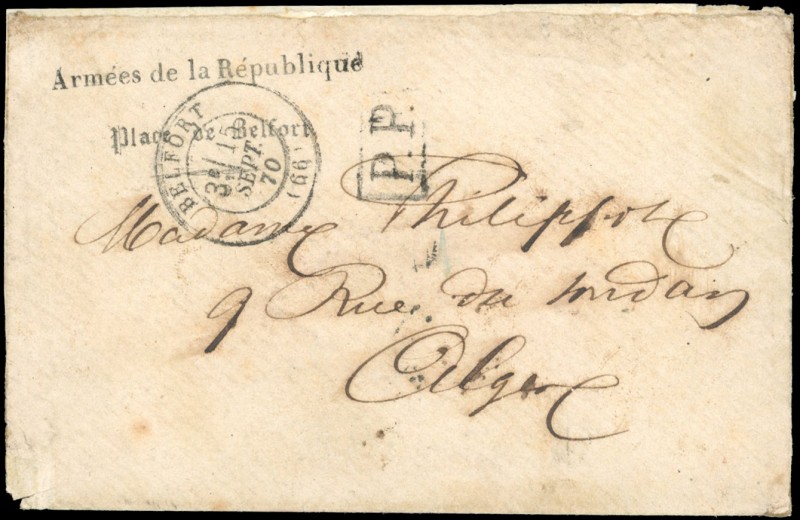 Armées de la République
Place de Belfort
BELFORT (66)
3e/
15
SEPT.
70
P.P.
Madame Philippot
9 Rue du Jourdan
Alger